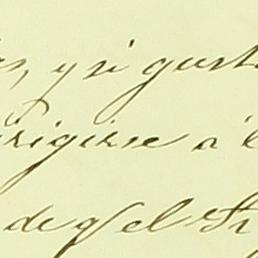 y si gust
irigirse á
de qe el